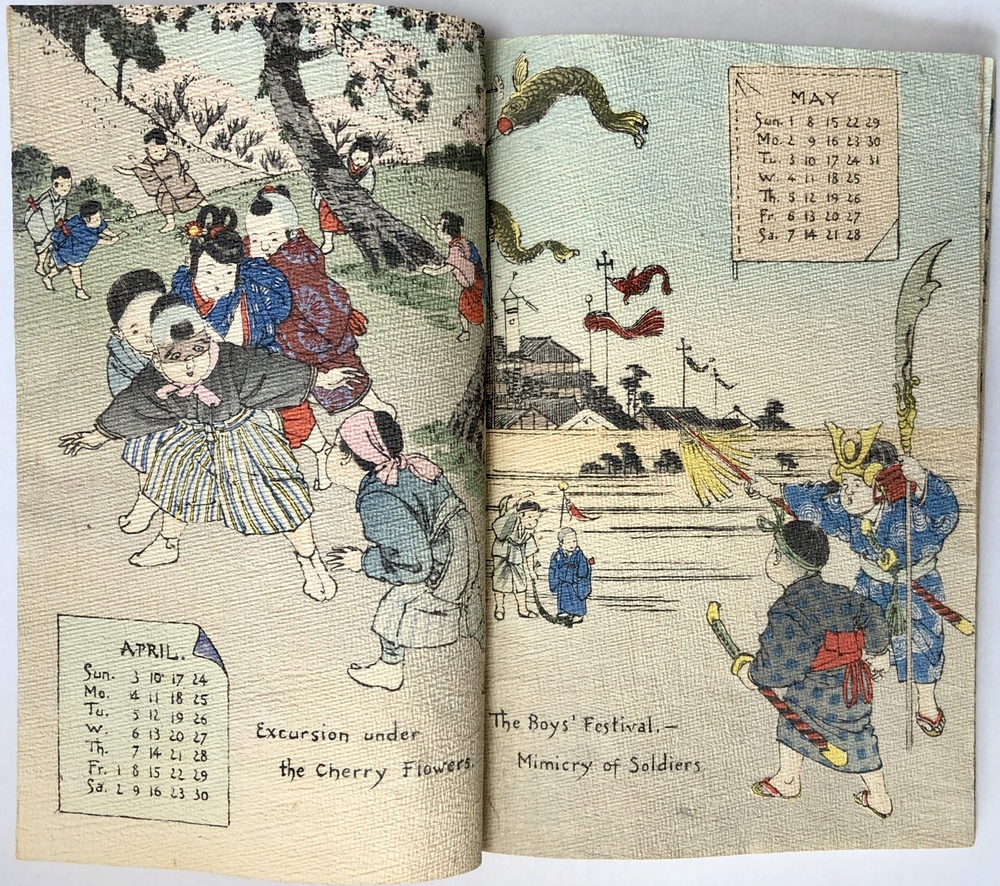 APRIL.
Sun. 3 10 17 24
Mo. 4 11 18 25
Tu. 5 12 19 26
W. 6 13 20 27
Th. 7 14 21 28
Fr. 1 8 15 22 29
Sa. 2 9 16 23 30
Excursion under
the Cherry Flowers.
MAY
Sun. 1 8 15 22 29
Mo. 2 9 16 23 30
Tu. 3 10 17 24 31
W. 4 11 18 25
Th. 5 12 19 26
Fr. 6 13 20 27
Sa. 7 14 21 28
The Boys' Festival.—
Mimicry of Soldiers